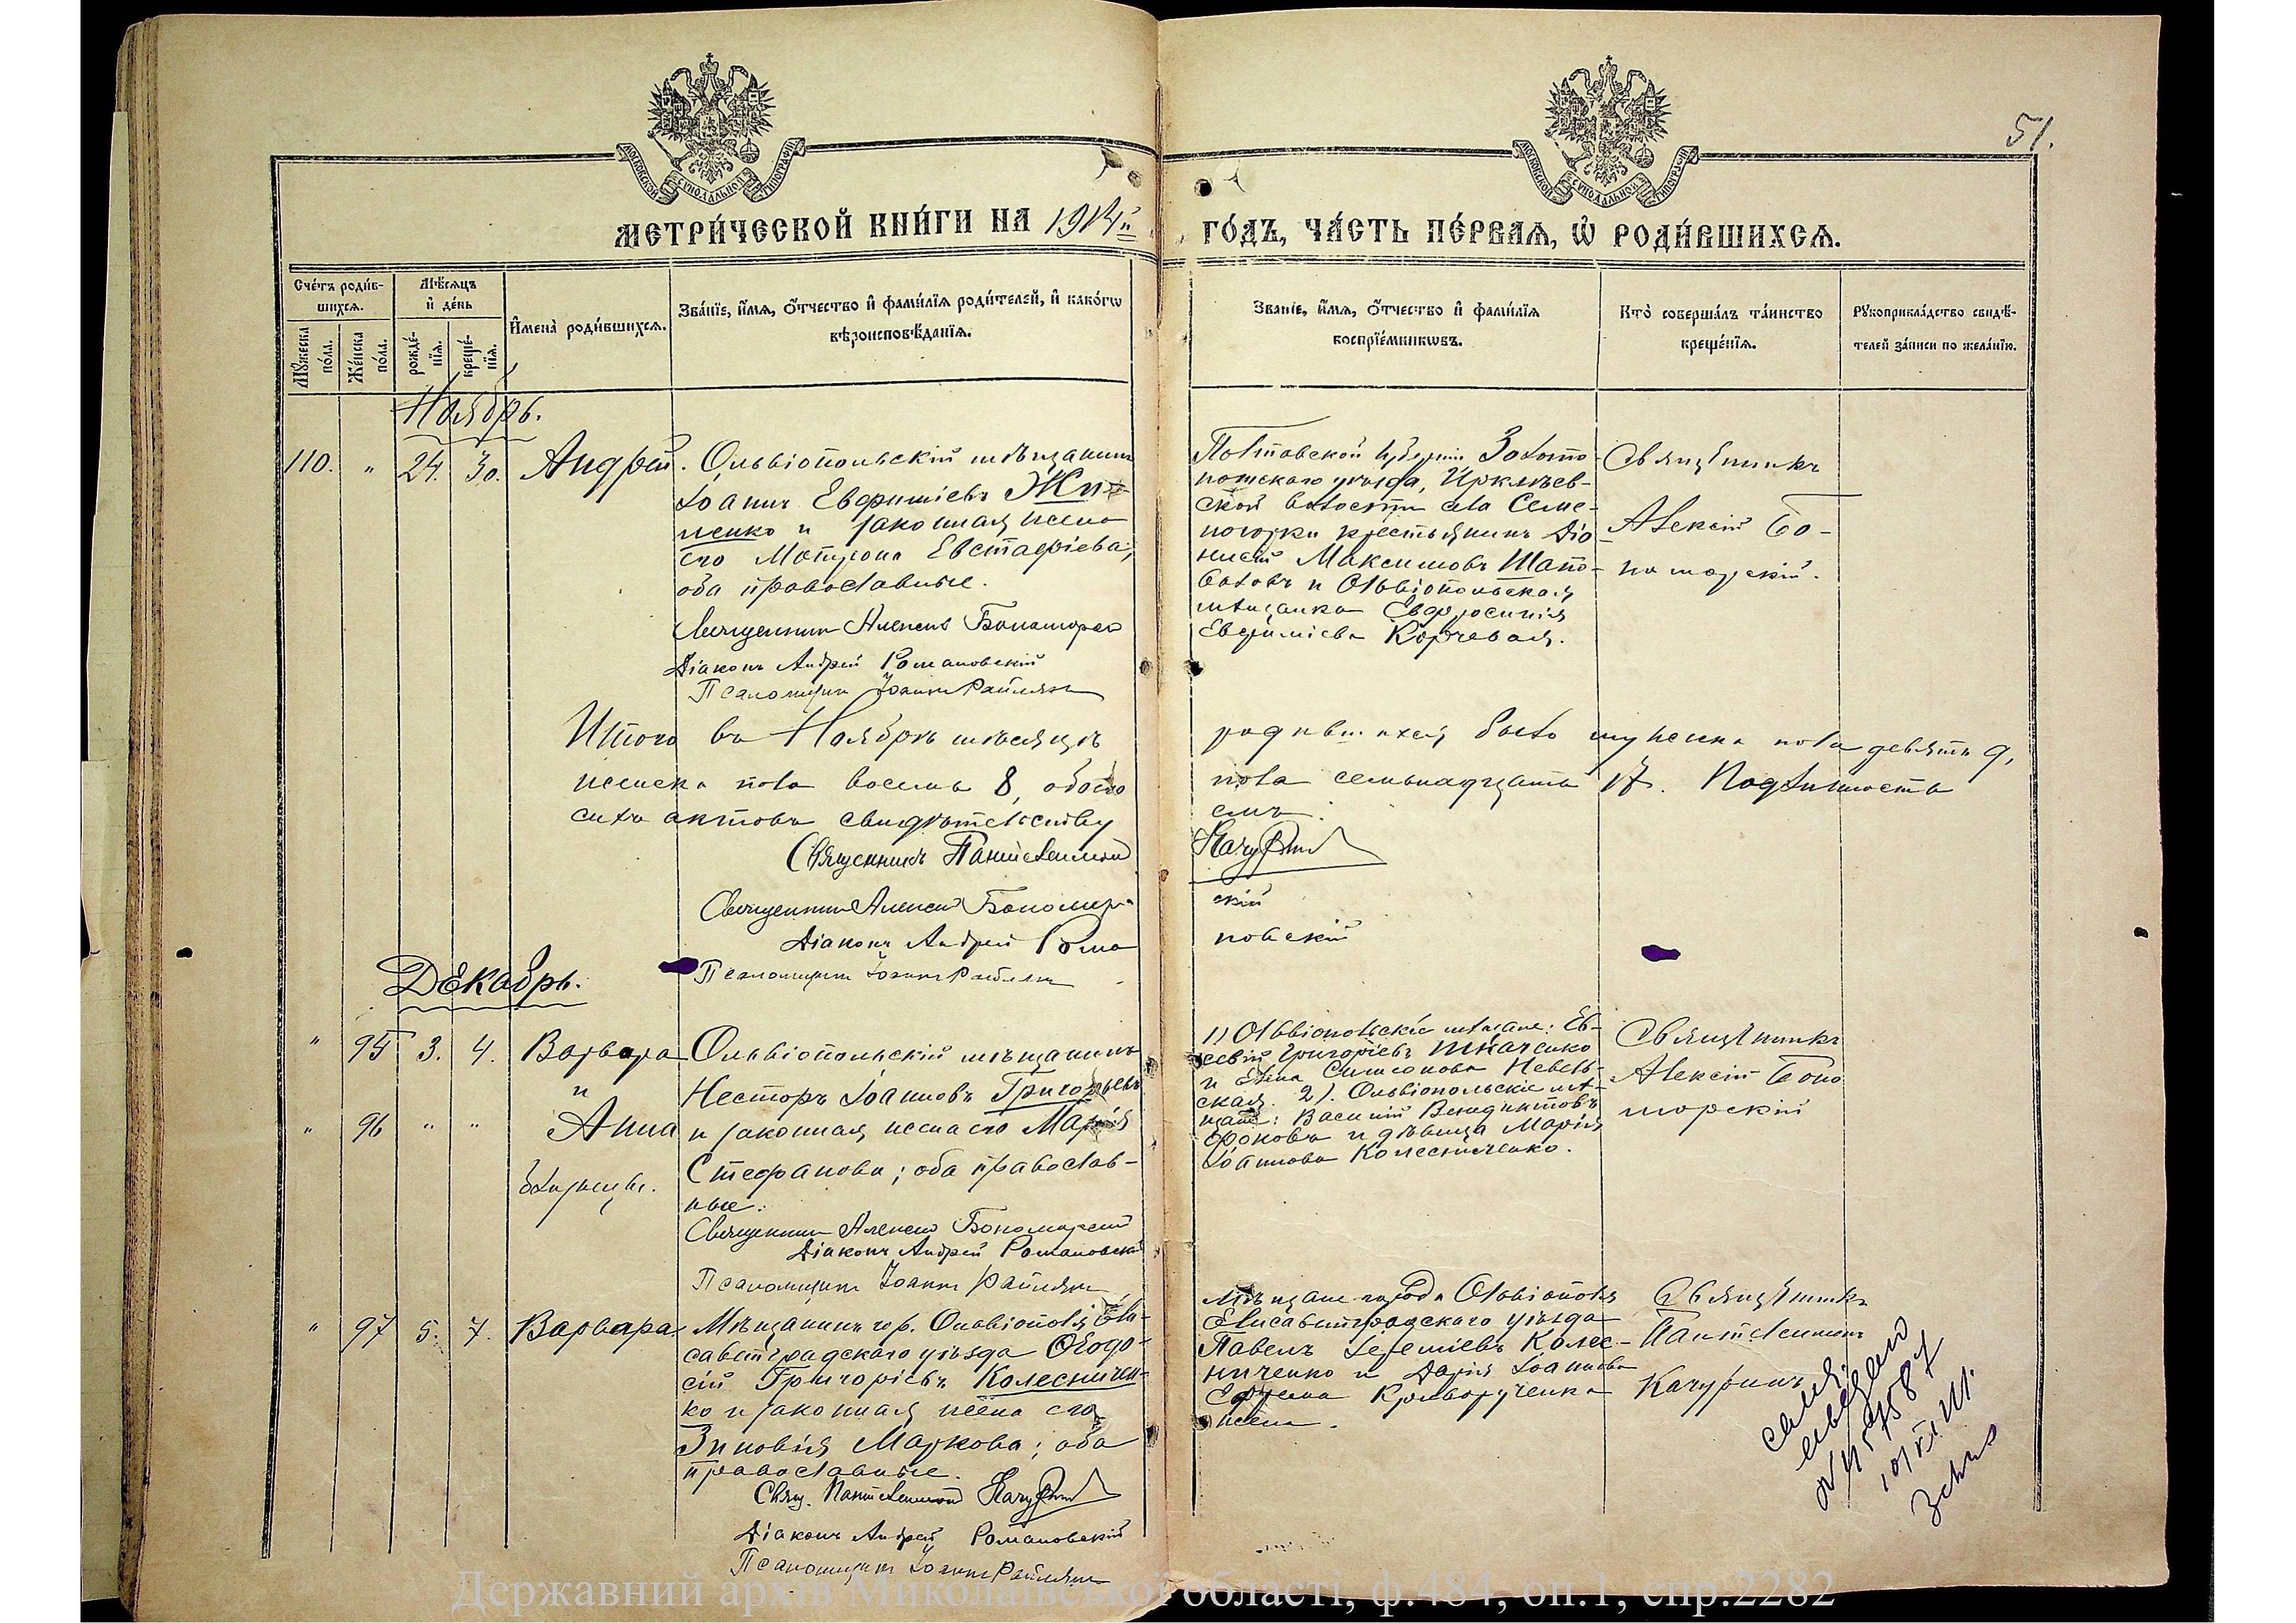 51.
МОСКОВСКОЙ СѴНОДАЛЬНОЙ ТИПОГРАФІИ
МОСКОВСКОЙ СѴНОДАЛЬНОЙ ТИПОГРАФІИ
МЕТРИ́ЧЕСКОЙ КНИ́ГИ НА 1914й ГО́ДЪ, ЧА́СТЬ ПЕ́РВАЯ, Ѡ҆ РОДИ́ВШИХСЯ.
Сче́тъ роди́в-
шихся.
Мѣ́сяцъ
и҆ де́нь
Мꙋ́жеска по́ла.
Же́нска по́ла.
рожде́-нїя.
креще́-нїя.
И҆мена̀ роди́вшихся.
Зва́нїе, и҆́мя, о҆́тчество и҆ фами́лїя роди́телей, и҆ како́гѡ
вѣроисповѣ́данїя.
Зва́нїе, и҆́мя, о҆́тчество и҆ фами́лїя
воспрїе́мникѡвъ.
Кто̀ соверша́лъ та́инство
креще́нїя.
Рꙋкоприкла́дство свидѣ́-
телей за́писи по жела́нїю.
Ноябрь.
110. " 24. 30. Андрей.
Ольвіопольскій мѣщанинъ
Іоаннъ Евфиміевъ Жи-
ленко и законная жена
его Матрона Евстафіева,
оба православные.
Священникъ Алексій Бономорскій
Діаконъ Андрей Романовскій
Псаломщикъ Іоаннъ
Полтавской губерніи Золото-
ношскаго уѣзда, Ирклѣев-
ской волости села Семе-
ногорки крестьянинъ Діо-
нисій Максимовъ Шапо-
валовъ и Ольвіопольская
мѣщанка Евфросинія
Евфиміева Корчевая.
Священникъ
Алексій Бо-
номорскій.
Итого въ Ноябрѣ мѣсяцѣ родившихся было мужеска пола девять 9,
женска пола восемь 8, обоего пола семьнадцать 17. Подлинность
сихъ актовъ свидѣтельствуемъ:
Священникъ Пантелеимонъ Качуринъ
Священникъ Алексій Бономорскій
Діаконъ Андрей Романовскій
Псаломщикъ Іоаннъ
Декабрь.
" 95 3. 4. Варвара
и
" 96 " " Анна
близнецы.
Ольвіопольскій мѣщанинъ
Несторъ Іоанновъ Григорьевъ
и законная жена его Марія
Стефанова; оба православ-
ные.
Священникъ Алексій Бономорскій
Діаконъ Андрей Романовскій
Псаломщикъ Іоаннъ
1) Ольвіопольскіе мѣщане: Ев-
севій Григорьевъ Ткаченко
и Елена Симеонова Невель-
ская. 2). Ольвіопольскіе мѣ-
щане: Василій Венедиктовъ
Фоковъ и дѣвица Марія
Іоаннова Колесниченко.
Священникъ
Алексій Боно
морскій
" 97 5. 7. Варвара
Мѣщанинъ гор. Ольвіополя Ели-
саветградскаго уѣзда Ѳеодо-
сій Григоріевъ Колесничен-
ко и законная жена его
Зиновія Маркова; оба
православные.
Свящ. Пантелеимонъ Качуринъ
Діаконъ Андрей Романовскій
Псаломщикъ Іоаннъ
Мѣщане города Ольвіополя
Елисаветградскаго уѣзда
Павелъ Іереміевъ Колес-
ниченко и Дарія Іоаннова
Криворученка
жена.
Священникъ
Пантелеимонъ
Качуринъ
Державний архів Миколаївської області, ф.484, оп.1, спр.2282